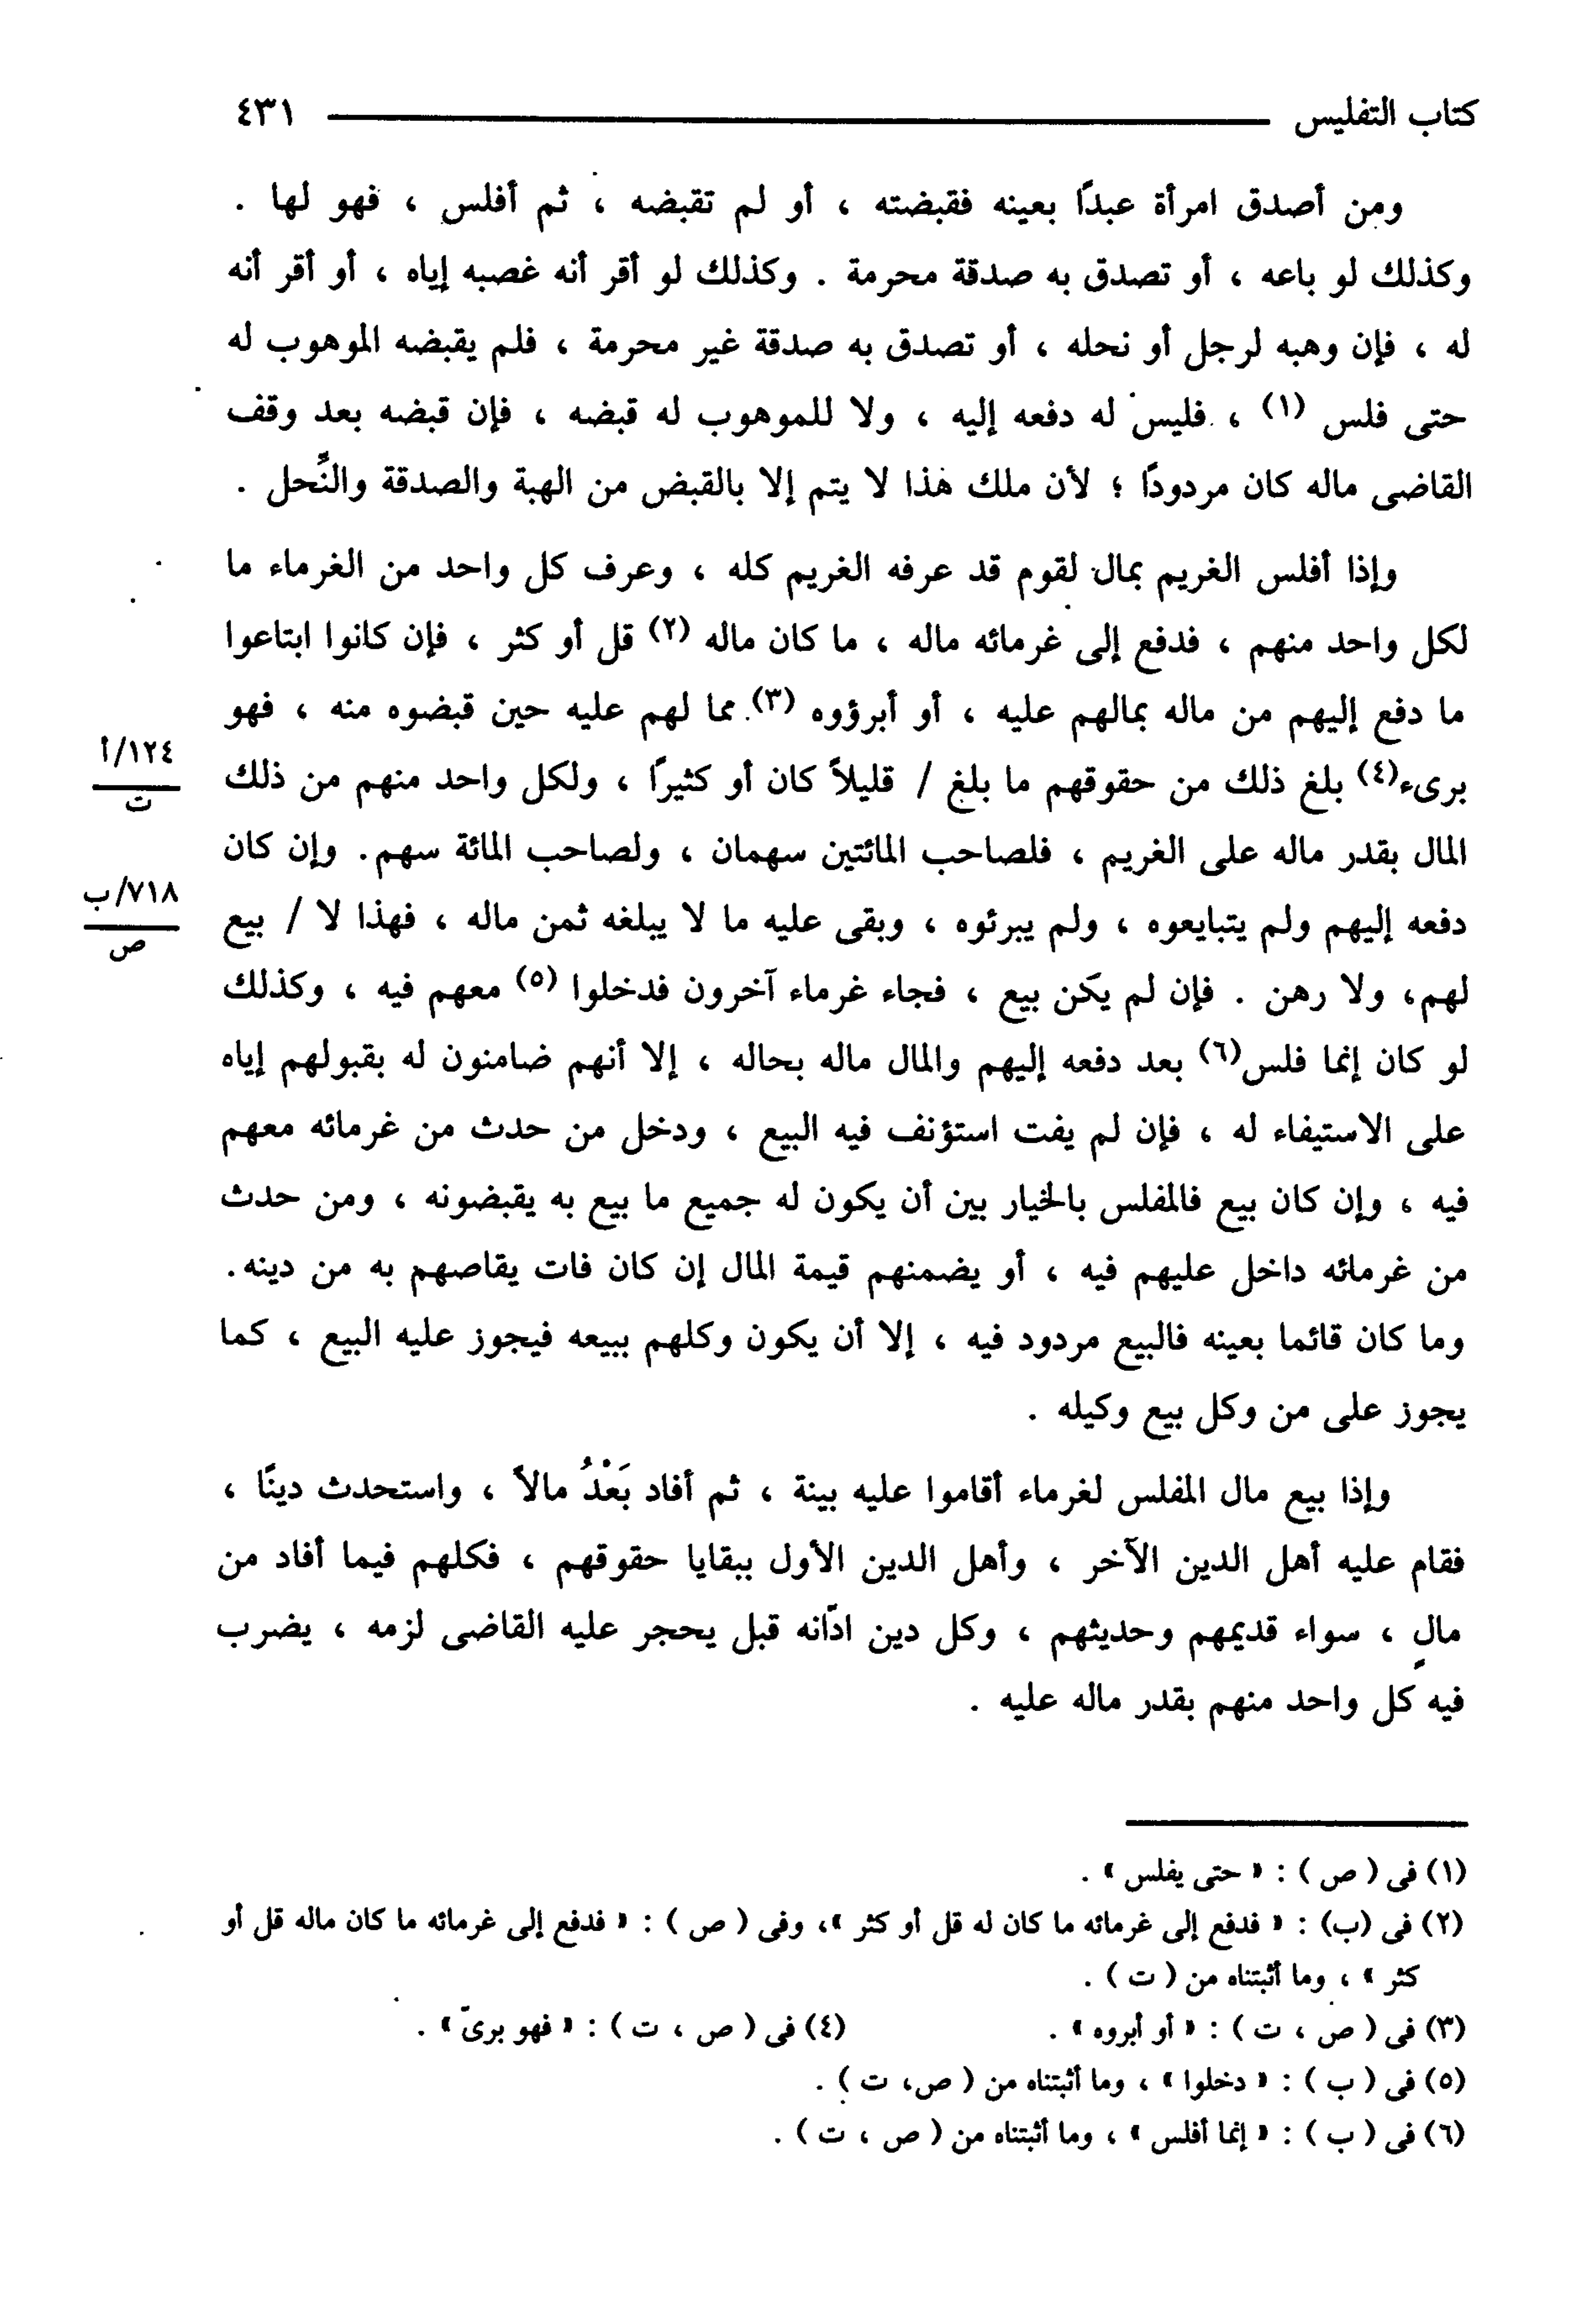 كتاب التفليس ٤٣١
ومن أصدق امرأة عبدًا بعينه فقبضته ، أو لم تقبضه ، ثم أفلس ، فهو لها .
وكذلك لو باعه ، أو تصدق به صدقة محرمة . وكذلك لو أقر أنه غصبه إياه ، أو أقر أنه
له ، فإن وهبه لرجل أو نحله ، أو تصدق به صدقة غير محرمة ، فلم يقبضه الموهوب له
حتى فلس (١) ، فليس له دفعه إليه ، ولا للموهوب له قبضه ، فإن قبضه بعد وقف
القاضى ماله كان مردودًا ؛ لأن ملك هذا لا يتم إلا بالقبض من الهبة والصدقة والنُّحل .
وإذا أفلس الغريم بمال لقوم قد عرفه الغريم كله ، وعرف كل واحد من الغرماء ما
لكل واحد منهم ، فدفع إلى غرمائه ماله ، ما كان ماله (٢) قل أو كثر ، فإن كانوا ابتاعوا
ما دفع إليهم من ماله بمالهم عليه ، أو أبرؤوه (٣) مما لهم عليه حين قبضوه منه ، فهو
برىء(٤) بلغ ذلك من حقوقهم ما بلغ / قليلاً كان أو كثيرًا ، ولكل واحد منهم من ذلك
١٢٤/أ
ت
المال بقدر ماله على الغريم ، فلصاحب المائتين سهمان ، ولصاحب المائة سهم. وإن كان
دفعه إليهم ولم يتبايعوه ، ولم يبرئوه ، وبقى عليه ما لا يبلغه ثمن ماله ، فهذا لا / بيع
٧١٨/ب
ص
لهم، ولا رهن . فإن لم يكن بيع ، فجاء غرماء آخرون فدخلوا (٥) معهم فيه ، وكذلك
لو كان إنما فلس(٦) بعد دفعه إليهم والمال ماله بحاله ، إلا أنهم ضامنون له بقبولهم إياه
على الاستيفاء له ، فإن لم يفت استؤنف فيه البيع ، ودخل من حدث من غرمائه معهم
فيه ، وإن كان بيع فالمفلس بالخيار بين أن يكون له جميع ما بيع به يقبضونه ، ومن حدث
من غرمائه داخل عليهم فيه ، أو يضمنهم قيمة المال إن كان فات يقاصهم به من دينه.
وما كان قائما بعينه فالبيع مردود فيه ، إلا أن يكون وكلهم ببيعه فيجوز عليه البيع ، كما
يجوز على من وكل بيع وكيله .
وإذا بيع مال المفلس لغرماء أقاموا عليه بينة ، ثم أفاد بَعْدُ مالاً ، واستحدث دينًا ،
فقام عليه أهل الدين الآخر ، وأهل الدين الأول ببقايا حقوقهم ، فكلهم فيما أفاد من
مالٍ ، سواء قديمهم وحديثهم ، وكل دين ادّانه قبل يحجر عليه القاضى لزمه ، يضرب
فيه كل واحد منهم بقدر ماله عليه .
(١) فى ( ص ) : « حتى يفلس » .
(٢) فى (ب) : « فدفع إلى غرمائه ما كان له قل أو كثر »، وفى ( ص ) : « فدفع إلى غرمائه ما كان ماله قل أو
كثر » ، وما أثبتناه من ( ت ) .
(٣) فى ( ص ، ت ) : « أو أبروه » . (٤) فى ( ص ، ت ) : « فهو برىّ » .
(٥) فى ( ب ) : « دخلوا » ، وما أثبتناه من ( ص، ت ) .
(٦) فى ( ب ) : « إنما أفلس » ، وما أثبتناه من ( ص ، ت ) .